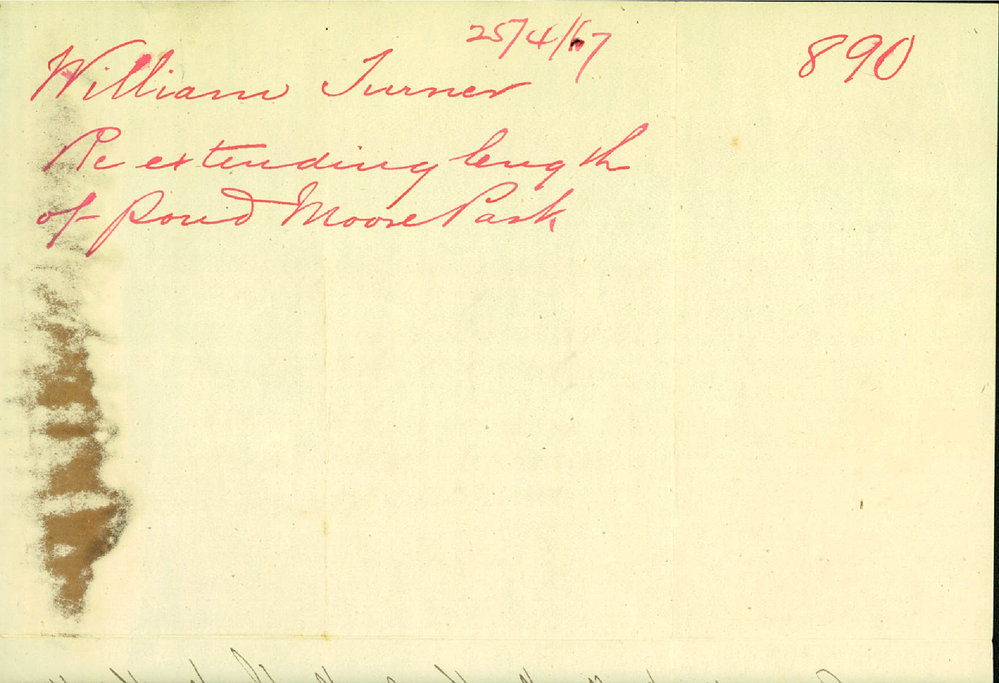 25/4/67
890
William Turner
Re extending length
of pond Moore Park